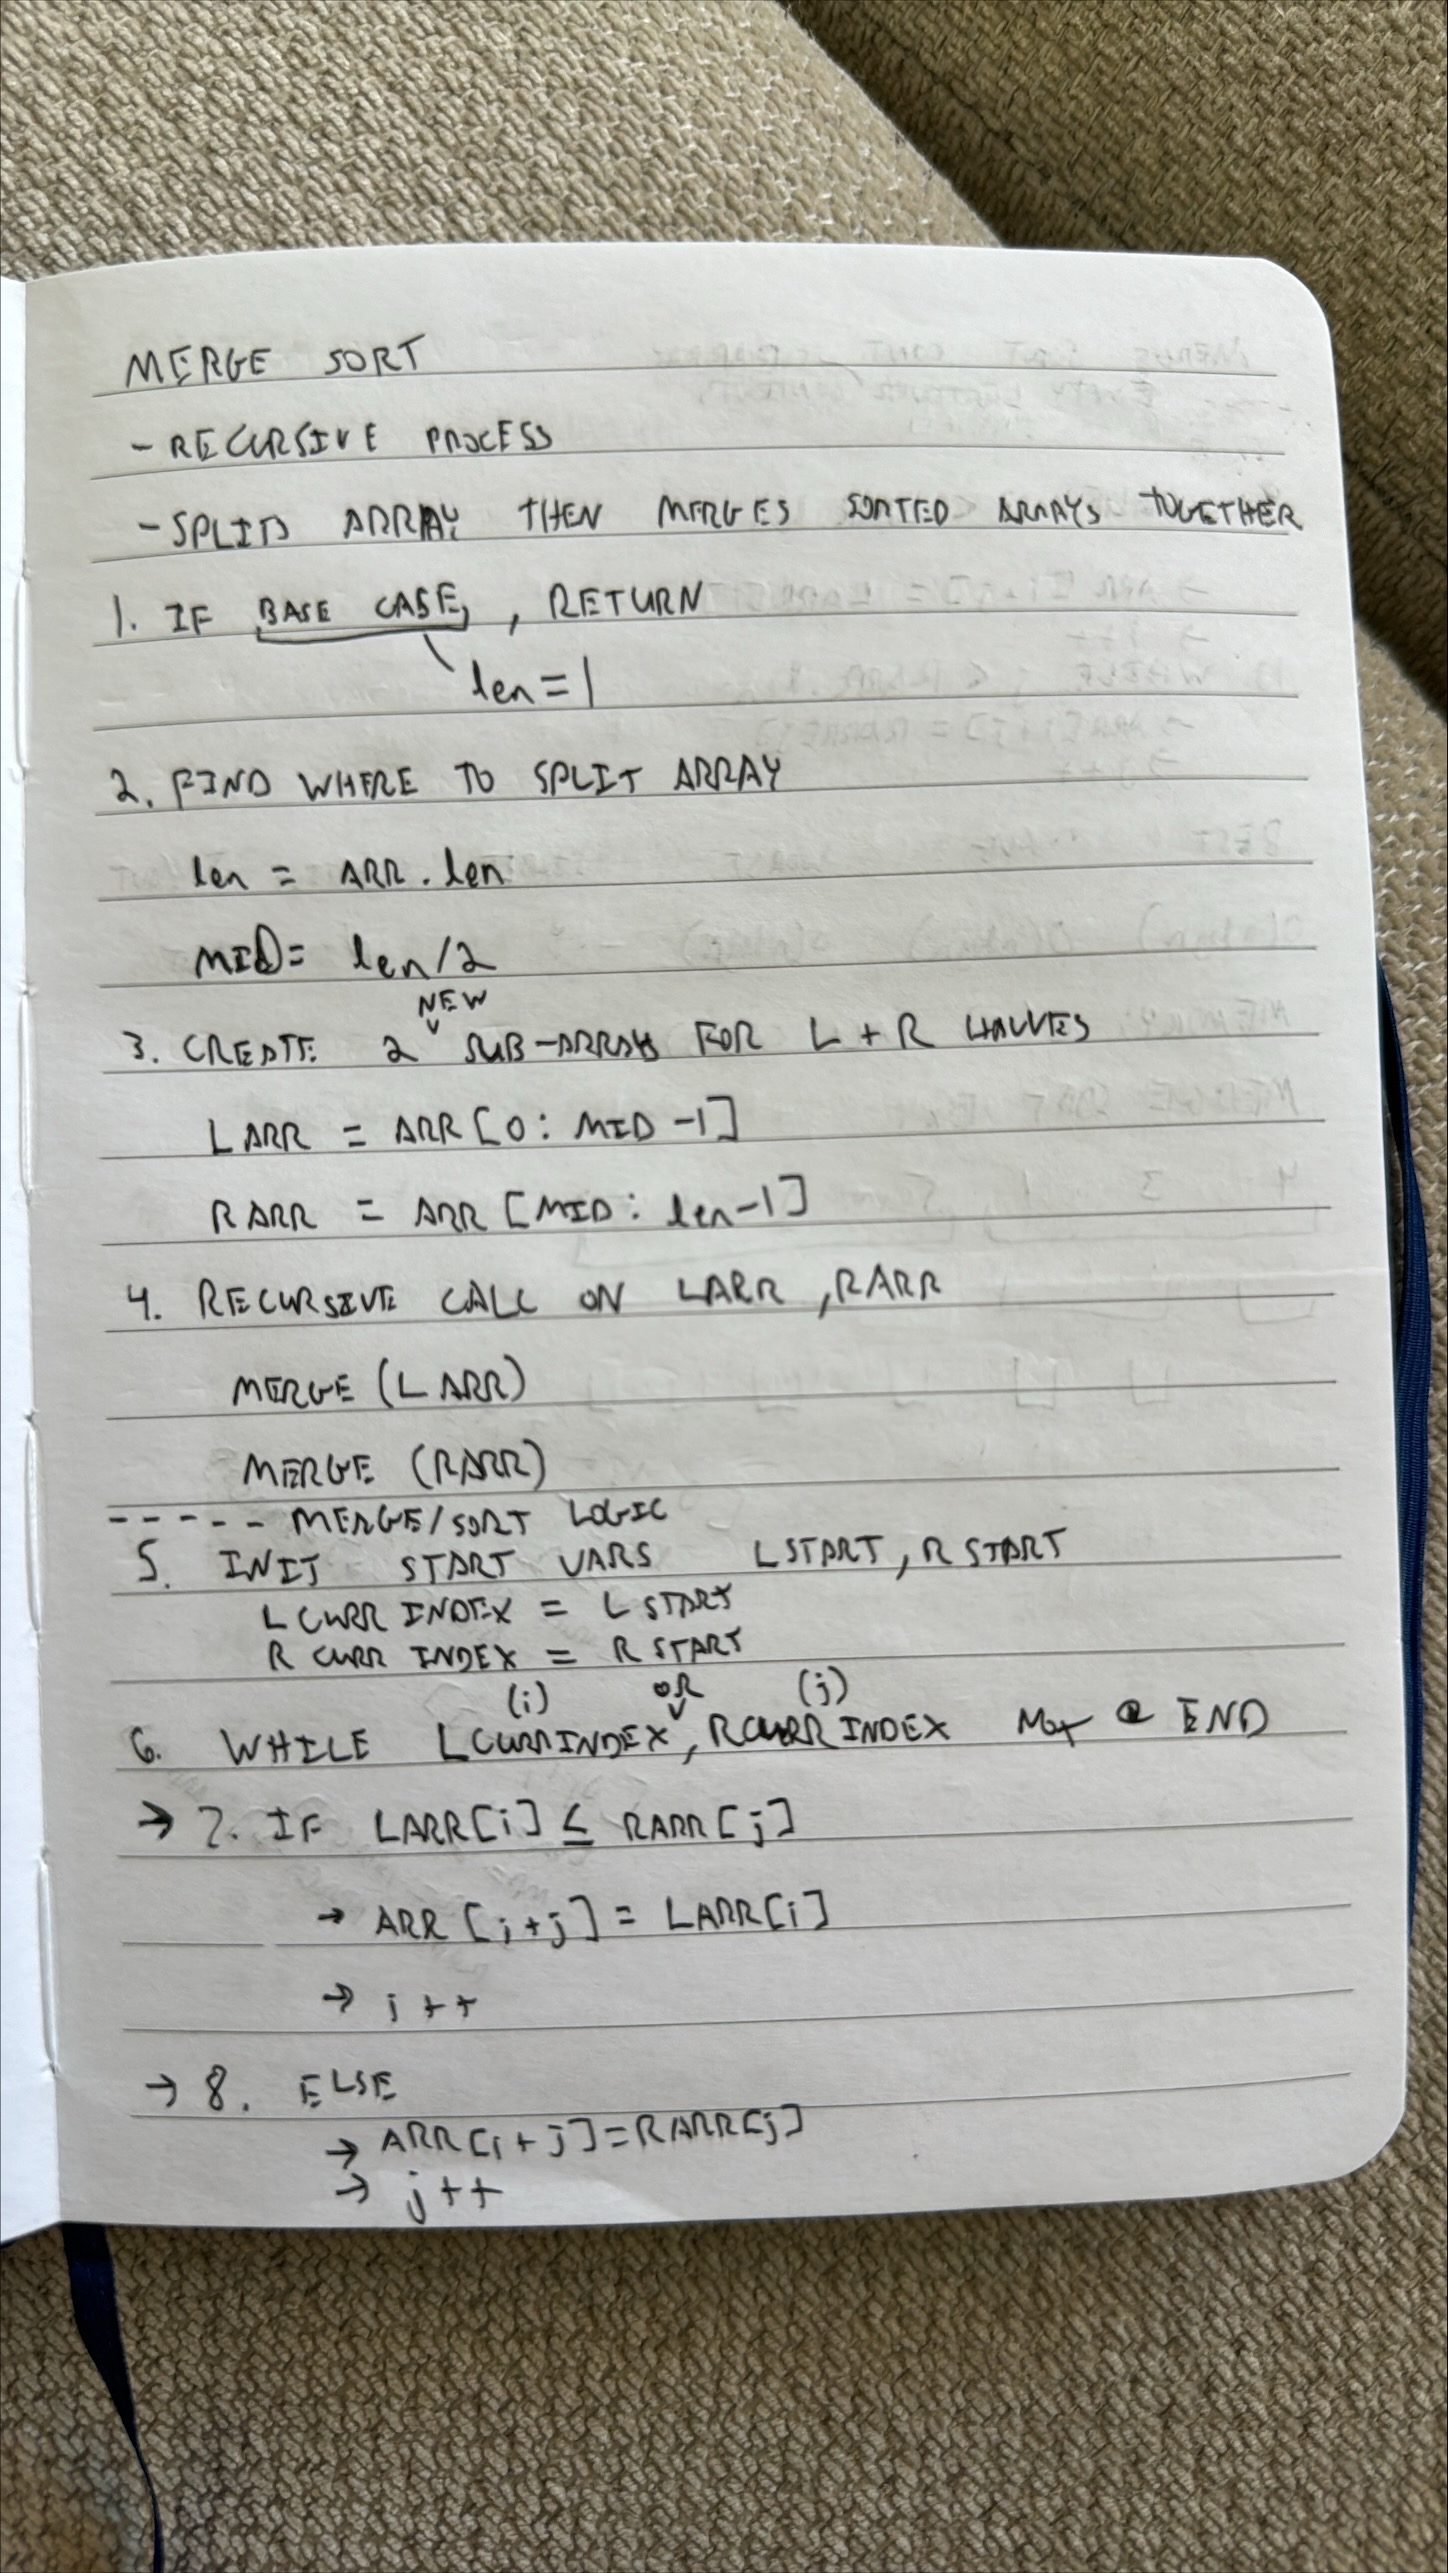 MERGE SORT
- RECURSIVE PROCESS
- SPLITS ARRAY THEN MERGES SORTED ARRAYS TOGETHER
1. IF BASE CASE, RETURN
len = 1
2. FIND WHERE TO SPLIT ARRAY
len = ARR . len
MID = len/2
NEW
3. CREATE 2 SUB-ARRAYS FOR L + R HALVES
LARR = ARR [0 : MID -1]
RARR = ARR [MID : len-1]
4. RECURSIVE CALL ON LARR , RARR
MERGE (LARR)
MERGE (RARR)
----- MERGE/SORT LOGIC
5. INIT START VARS LSTART, RSTART
L CURR INDEX = L START
R CURR INDEX = R START
(i) OR (j)
6. WHILE LCURRINDEX, RCURRINDEX NOT @ END
→ 7. IF LARR[i] ≤ RARR[j]
→ ARR [i+j] = LARR[i]
→ i ++
→ 8. ELSE
→ ARR[i+j] = RARR[j]
→ j++